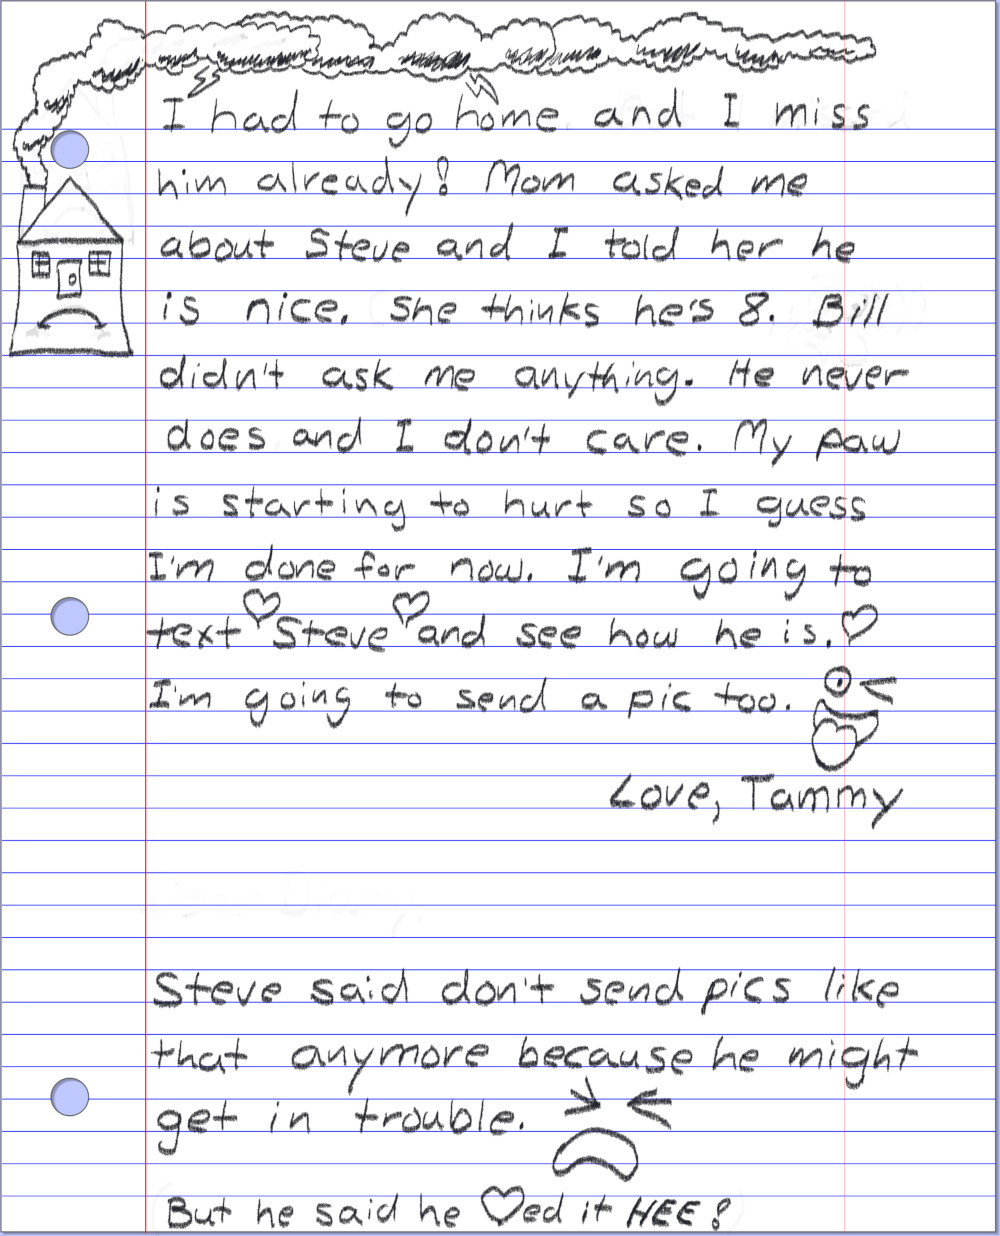 I had to go home and I miss
him already! Mom asked me
about Steve and I told her he
is nice. She thinks he's 8. Bill
didn't ask me anything. He never
does and I don't care. My paw
is starting to hurt so I guess
I'm done for now. I'm going to
text ♡ Steve ♡ and see how he is. ♡
I'm going to send a pic too.
Love, Tammy
Steve said don't send pics like
that anymore because he might
get in trouble.
But he said he ♡ed it HEE!